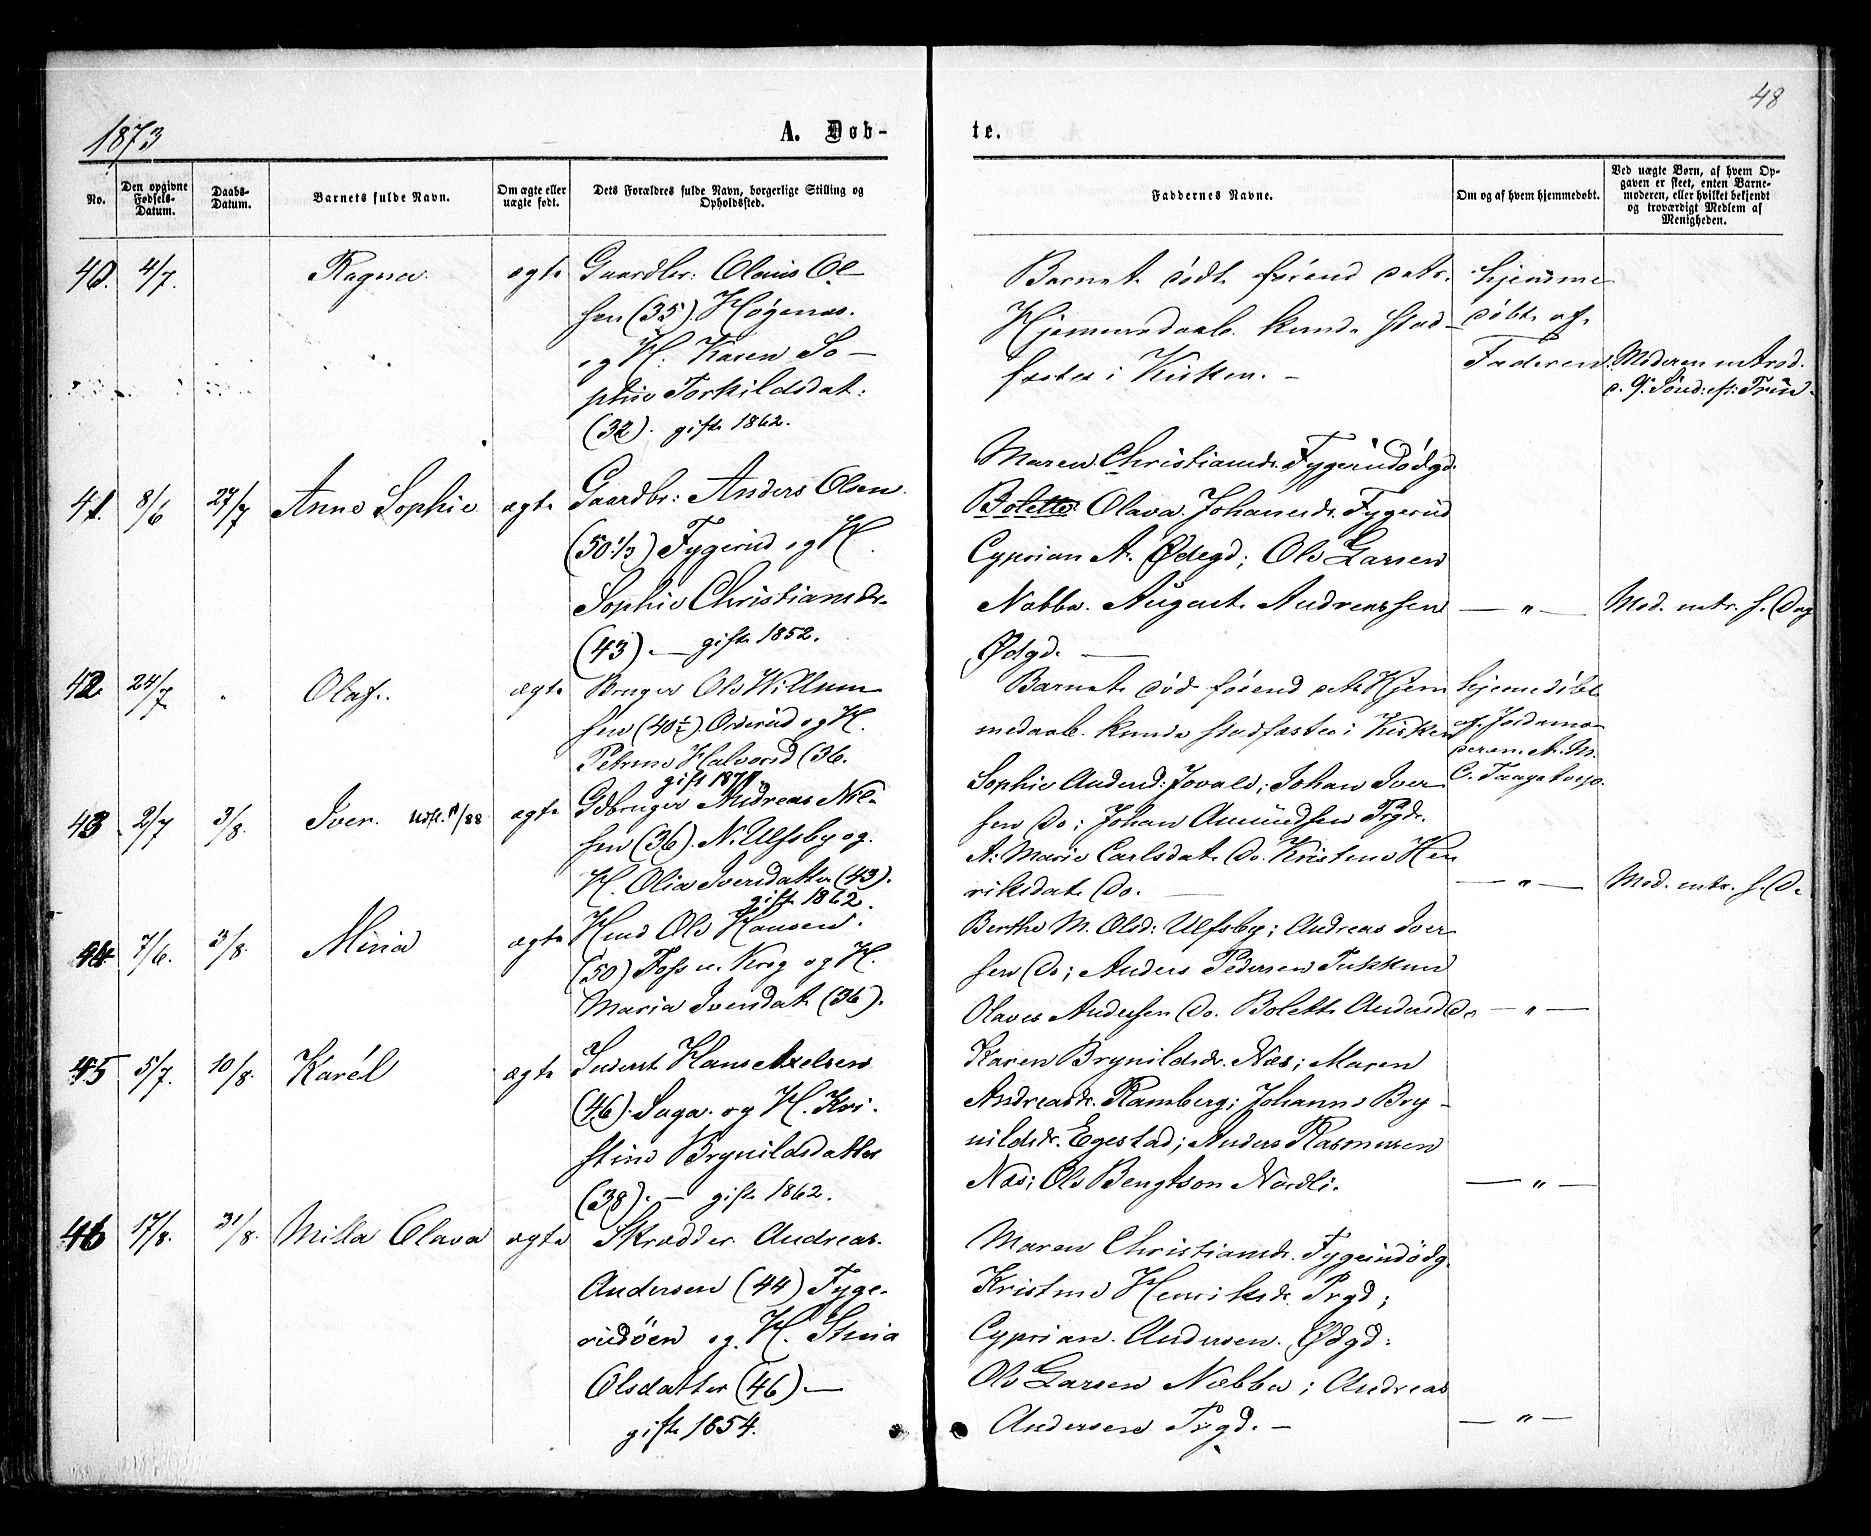 48
1873
A. Døb-
te.
No.
Den opgivne
Fødsels-
Datum.
Daabs-
Datum.
Barnets fulde Navn.
Om ægte eller
uægte født.
Dets Forældres fulde Navn, borgerlige Stilling og
Opholdssted.
Faddernes Navne.
Om og af hvem hjemmedøbt.
Ved uægte Børn, af hvem Op-
gaven er skeet, enten Barne-
moderen, eller hvilket bekjendt
og troværdigt Medlem af
Menigheden.
40. 4/7. Ragna. ægte
Gaardbr: Olaus Ol-
sen (35). Høgenæs.
og H. Karen So-
phie Torkildsdat:
(32). gift 1862.
Barnet dødt førend dets
Hjemmedaab kunde stad-
fæstes i Kirken. -
Hjemme
døbt af
Faderen.
Moderen introd.
41. 8/6 27/7 Anne Sophie ægte
Gaardbr: Anders Olsen
(50 1/2) Fygerud og H.
Sophie Christiansdr.
(43). — gift 1852.
Maren Christiansdr. Fygerudødgd.
Bolette Olava Johannesdr. Fygerud
Cyprian A. Ødegd; Ole Larsen
Næbba. August Andreassen
Ødgd. —
— " —
Mod. intr. s. Dag
42. 24/7 Olaf. ægte
Bruger Ole Willum
sen (40 1/2). Ørderud og H.
Petrine Halvorsd (36.
gift 1871
Barnet død førend dets Hjem
medaab kunde stadfæstes i Kirken
hjemmedøbt
af Jordemo-
deren A. M.
43 2/7 3/8. Iver. Udfl. /88 ægte
Gdbruger Andreas Nil-
sen (36). N. Ulfsby og
H. Olia Iversdatter (43).
gift 1862.
Sophie Andersd: Jovald; Johan Iver
sen Do; Johan Amundsen Prgd.
A: Marie Carlsdat. Do. Kristine Hen
riksdat. Do. —
— " —
Mod. intr. s. D.
44 7/6. 3/8. Mina ægte
Hmd Ole Hansen.
(50) Foss u. Krog og H.
Maria Svensdat. (36).
Berthe M. Olsd: Ulfsby; Andreas Iver
sen Do; Anders Pedersen Tukkun
Olaves Andersen Do. Bolette Andersd Do
— " —
45 5/7. 10/8. Karél ægte
Inderst Hans Axelsen
(46). Saga. og H. Kri-
stine Brynildsdatter
(38). — gift 1862.
Karen Brynildsdr. Næs; Maren
Andreasdr. Ramberg; Johanne Bry-
nildsdr. Egestad; Anders Rasmussen
Næs; Ole Bengtson Nordli.
— " —
46 17/8. 31/8. Milla Olava ægte
Skrædder Andreas
Andersen (44) Fyge-
rudöen og H. Stina
Olsdatter (46) —
gift 1854.
Maren Christiansdr. Fygerudödg.
Kristine Henriksdr. Prgd;
Cyprian Andersen. Ødgd:
Ole Larsen Næbba; Andreas
Andersen Prgd. -
— " —